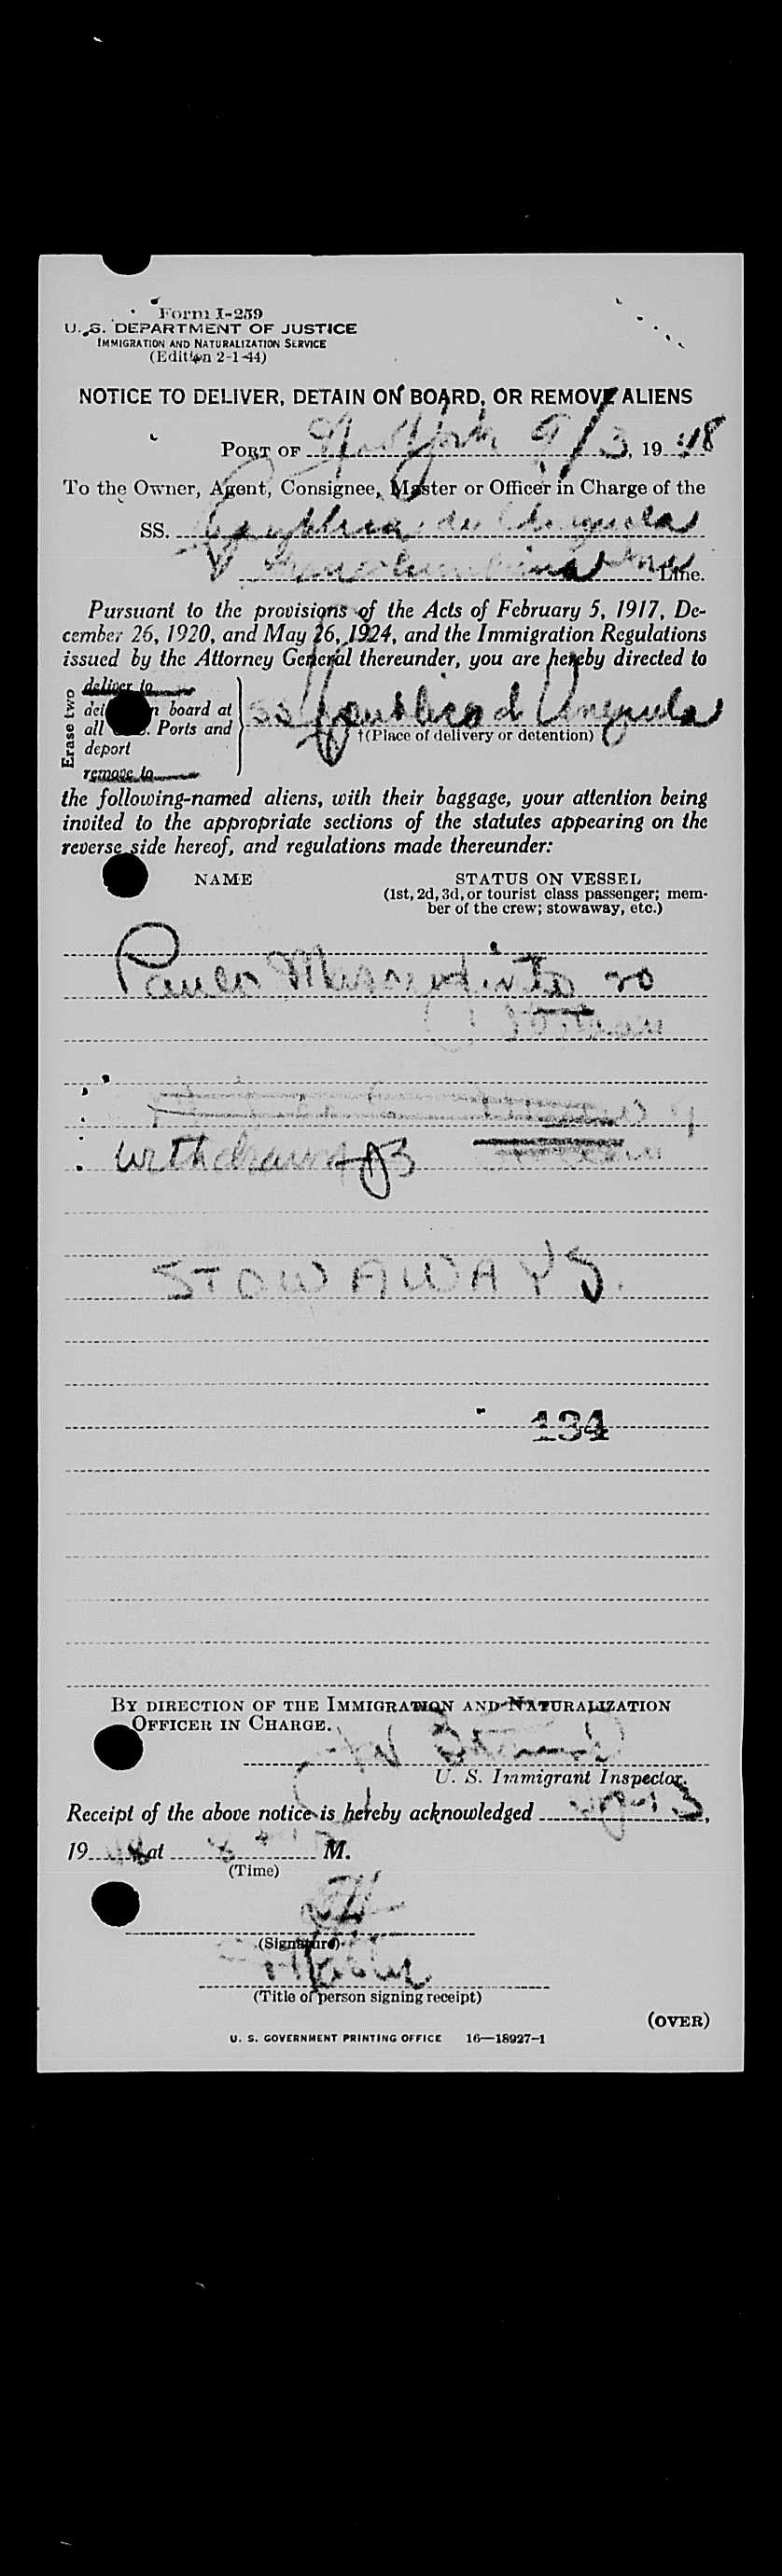 Form I-259
U. S. DEPARTMENT OF JUSTICE
IMMIGRATION AND NATURALIZATION SERVICE
(Edition 2-1-44)
NOTICE TO DELIVER, DETAIN ON BOARD, OR REMOVE ALIENS
PORT OF New York 9/3, 1948
To the Owner, Agent, Consignee, Master or Officer in Charge of the
SS.
Line.
Pursuant to the provisions of the Acts of February 5, 1917, De-
cember 26, 1920, and May 26, 1924, and the Immigration Regulations
issued by the Attorney General thereunder, you are hereby directed to
Erase two
deliver to
board at
all Ports and
deport
remove to
SS
†(Place of delivery or detention)
the following-named aliens, with their baggage, your attention being
invited to the appropriate sections of the statutes appearing on the
reverse side hereof, and regulations made thereunder:
NAME
STATUS ON VESSEL
(1st, 2d, 3d, or tourist class passenger; mem-
ber of the crew; stowaway, etc.)
20
withdrawn
STOWAWAYS.
134
BY DIRECTION OF THE IMMIGRATION AND NATURALIZATION
OFFICER IN CHARGE.
U. S. Immigrant Inspector.
Receipt of the above notice is hereby acknowledged
19 48 at M.
(Time)
(Signature)
(Title of person signing receipt)
(OVER)
U. S. GOVERNMENT PRINTING OFFICE 16—18927-1